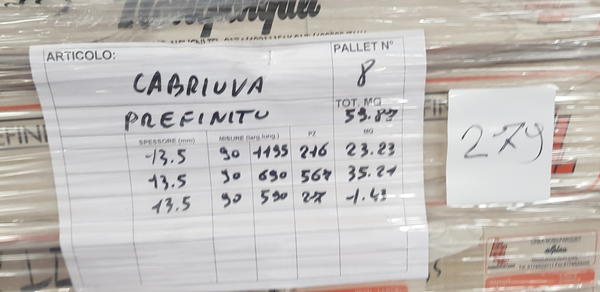 ARTICOLO:
PALLET N°
CABRIUVA
8
PREFINITO
TOT. MQ
59.87
SPESSORE (mm) MISURE (larg.lung.) PZ MQ
13.5 90 1195 216 23.23
13.5 90 690 567 35.21
13.5 90 590 27 1.43
279